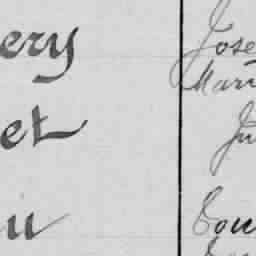 ery
et
u
Jose
Mari
Ju
Cou